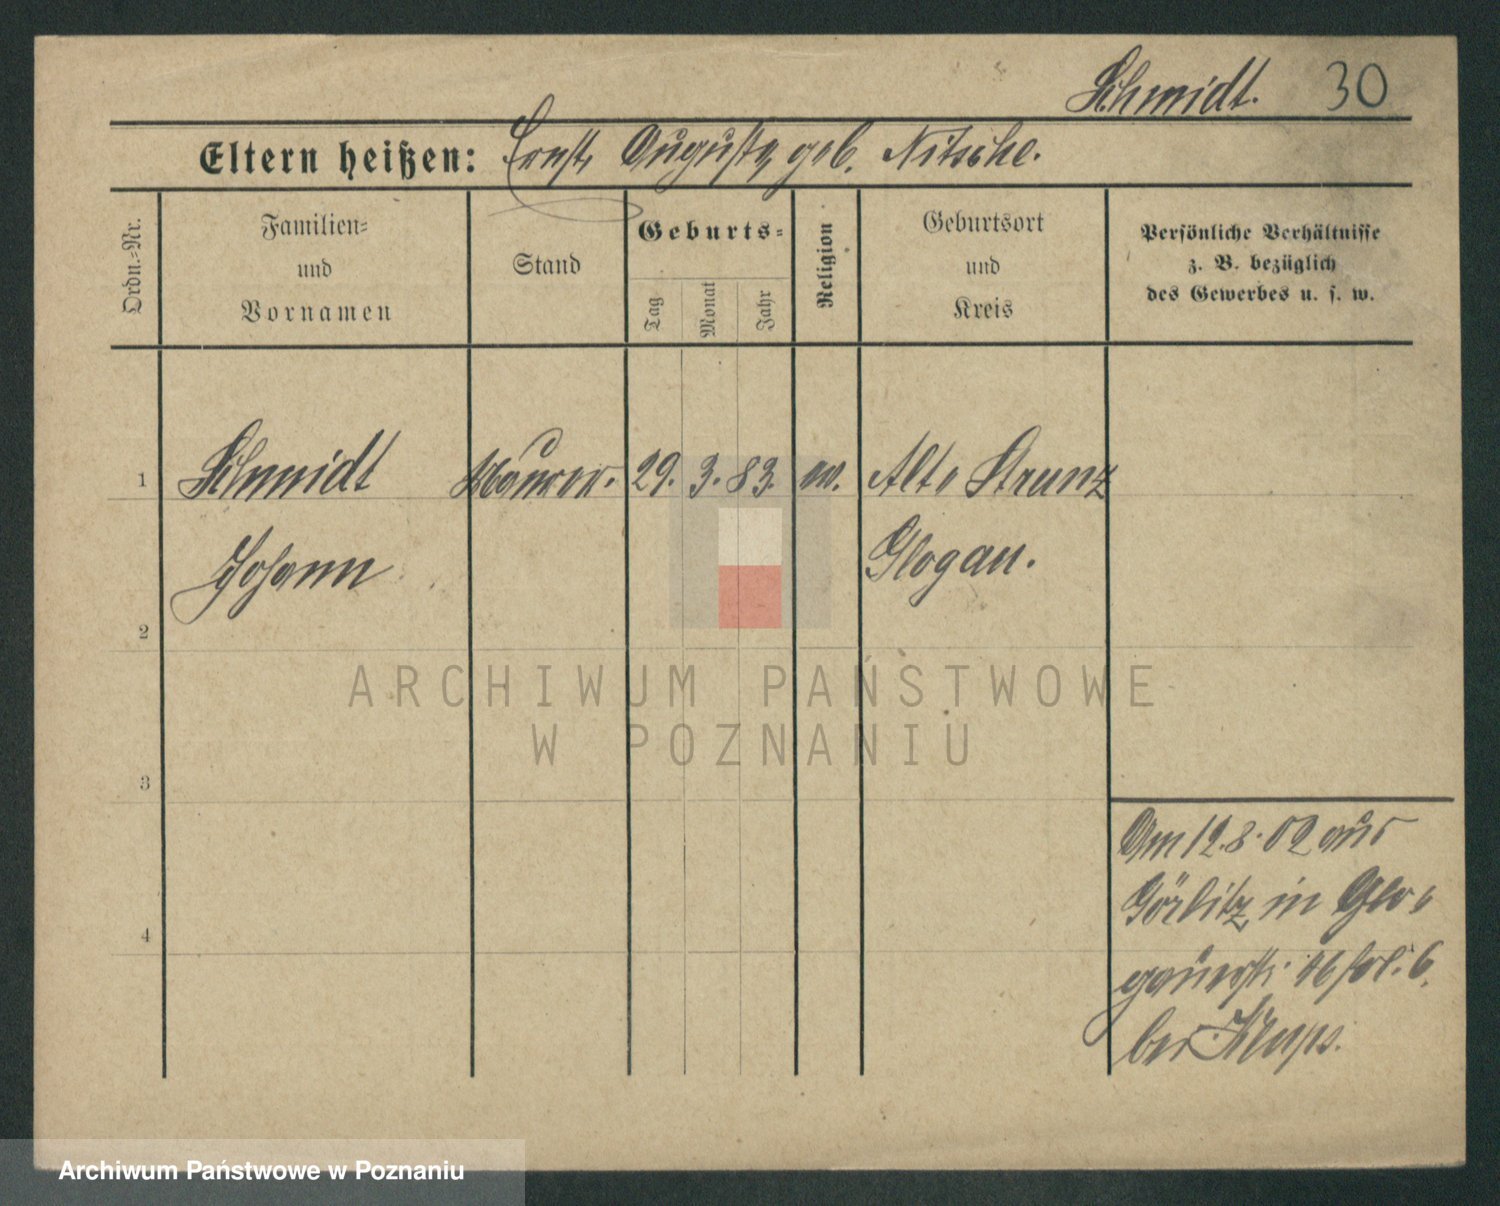 Schmidt. 30
Eltern heißen: Ernst, Auguste, geb. Nitsche.
Ordn.=Nr.
Familien=
und
Vornamen
Stand
Geburts=
Tag
Monat
Jahr
Religion
Geburtsort
und
Kreis
Persönliche Verhältnisse
z. B. bezüglich
des Gewerbes u. s. w.
1 Schmidt Maurer. 29. 3. 83. ev. Alt Strunz
Johann Glogau.
2
3
4
Am 12.8.02 aus
Görlitz in Glo-
gauerstr.
bei
ARCHIWUM PAŃSTWOWE
W POZNANIU
Archiwum Państwowe w Poznaniu